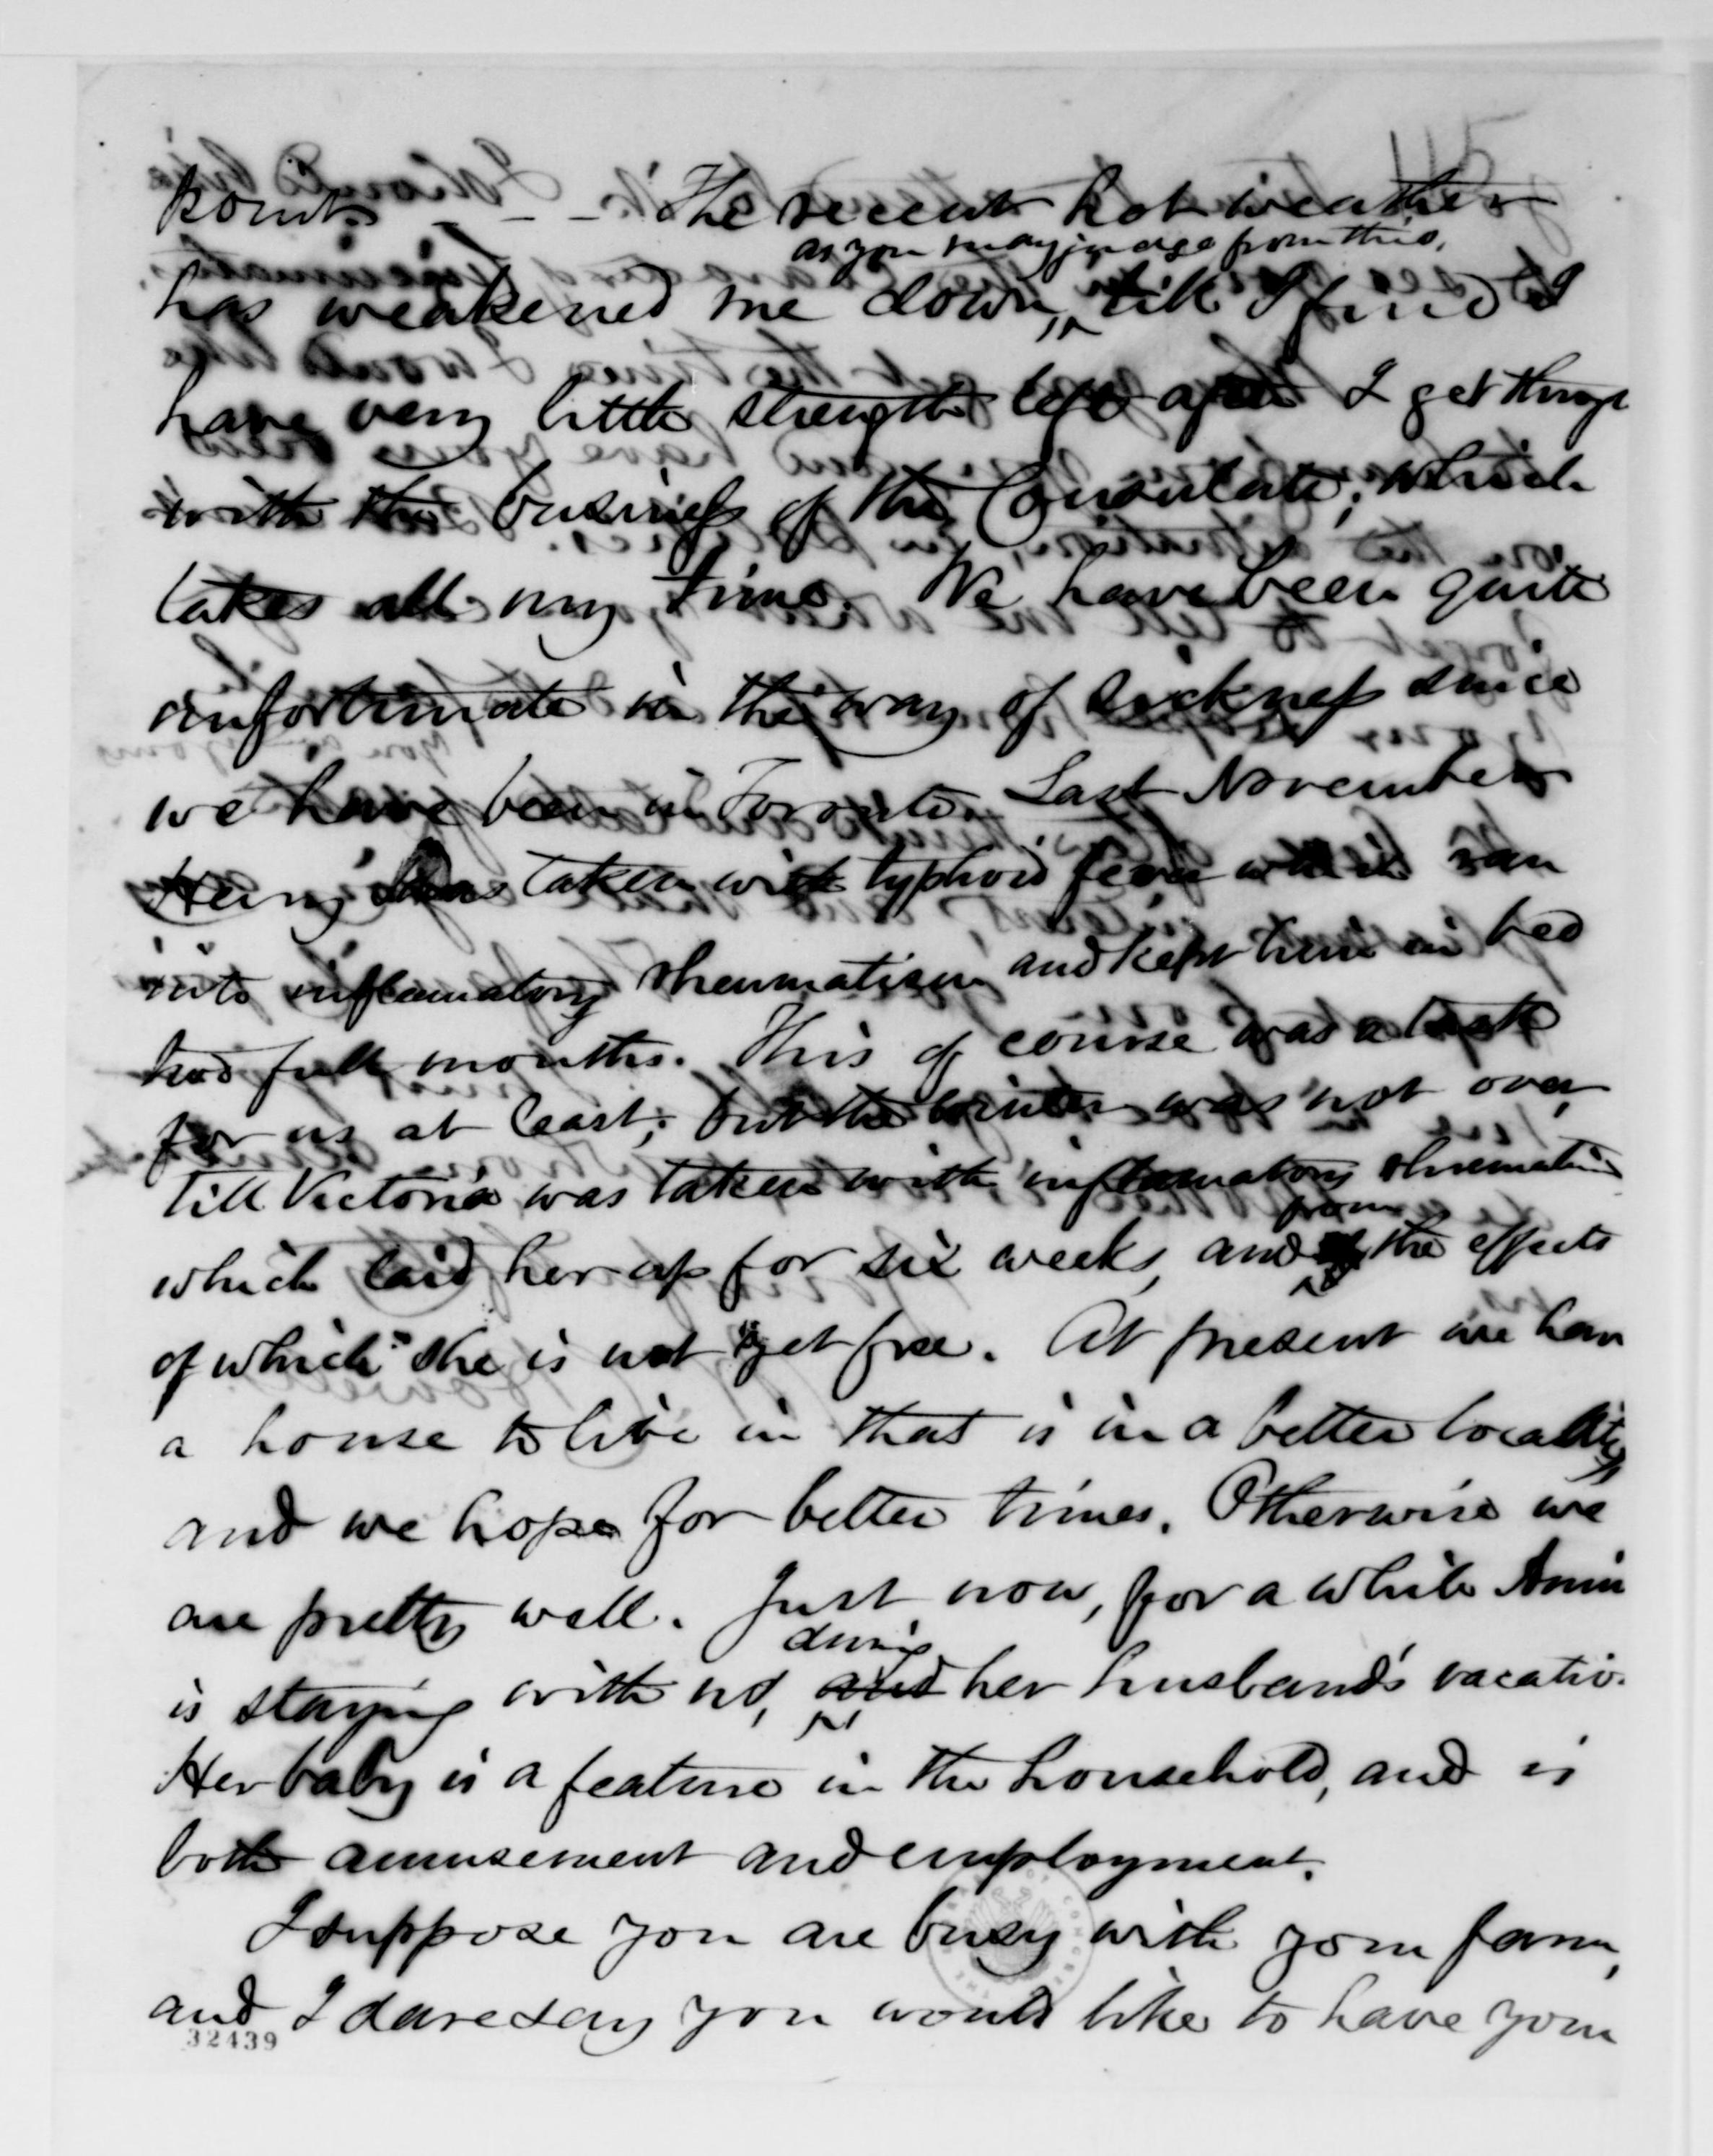 115
points _ _ _ The recent hot weather
as you may judge from this,
has weakened me down, till I find I
have very little strength left after I get through
with the business of the Consulate, which
takes all my time. We have been quite
unfortunate in the way of sickness since
we have been in Toronto. Last November
Henry was taken with typhoid fever which ran
into inflamatory rheumatism and kept him in bed
two full months. This of course was a task
for us at least; but the winter was not over,
till Victoria was taken with inflamatory rheumatism
from
which laid her up for six weeks, and of the effects
of which she is not yet free. At present we have
a house to live in that is in a better locality
and we hope for better times. Otherwise we
are pretty well. Just now, for a while Annie
during
is staying with us, and her husband's vacation.
Her baby is a feature in the household, and is
both amusement and employment.
I suppose you are busy with your farm,
and I dare say you would like to have your
32439